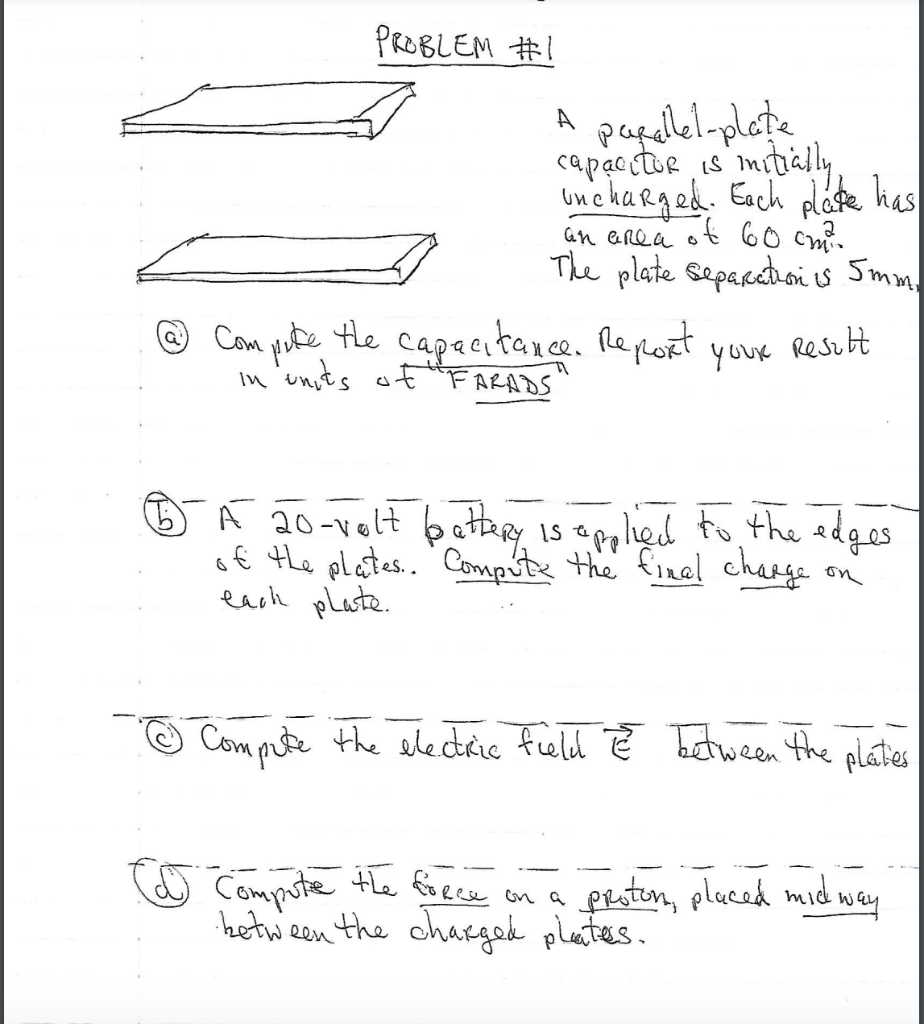 PROBLEM #1
A parallel-plate
capacitor is initially
uncharged. Each plate has
an area of 60 cm².
The plate separation is 5mm.
ⓐ Compute the capacitance. Report your result
in units of "FARADS"
ⓑ A 20-volt battery is applied to the edges
of the plates.. Compute the final charge on
each plate.
ⓒ Compute the electric field E⃗ between the plates
ⓓ Compute the force on a proton, placed midway
between the charged plates.